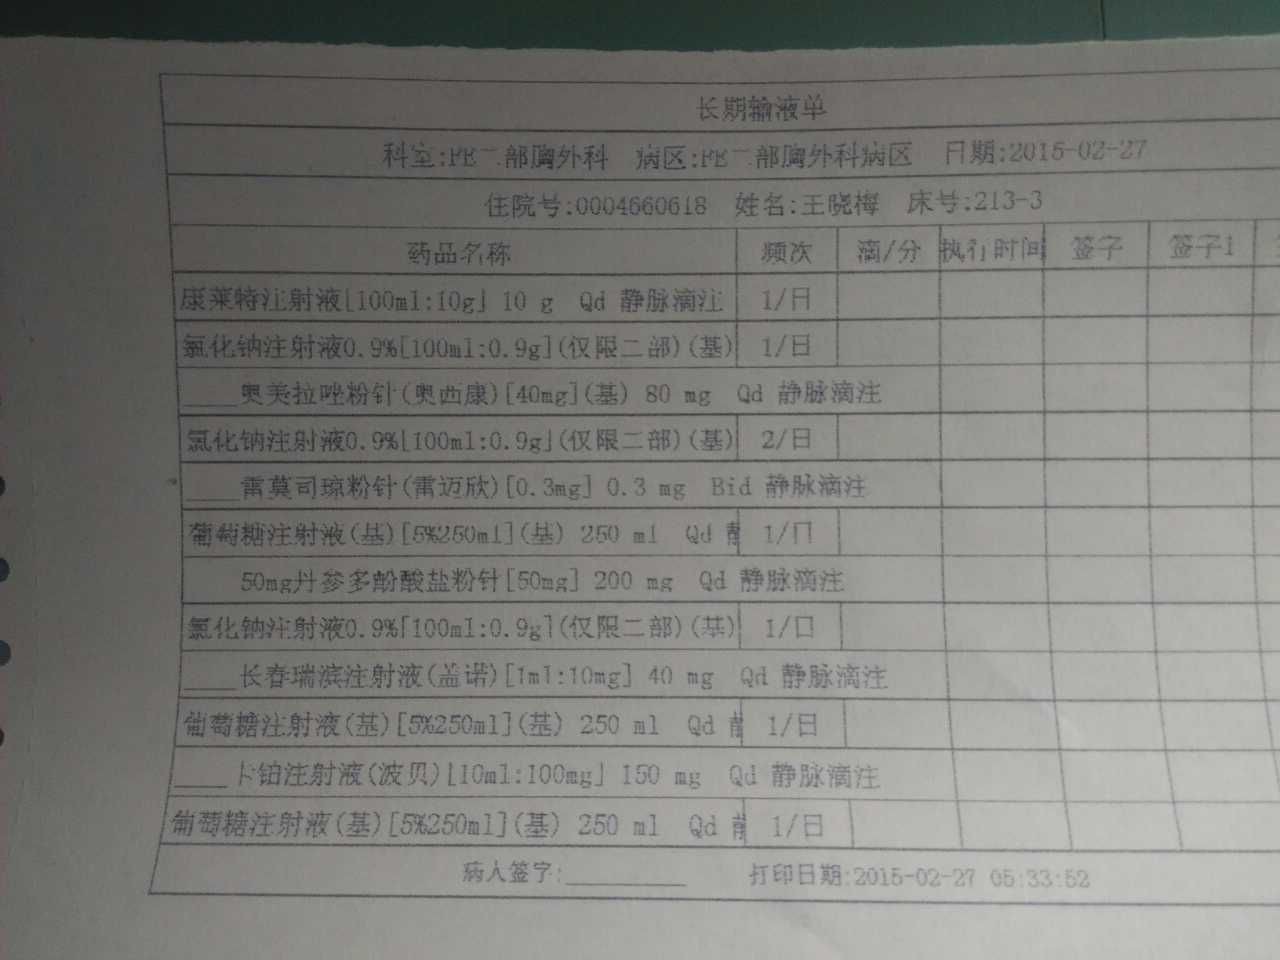 长期输液单
科室:PE二部胸外科 病区:PE二部胸外科病区 日期:2015-02-27
住院号:0004660618 姓名:王晓梅 床号:213-3
药品名称 频次 滴/分 执行时间 签字 签字1
康莱特注射液[100ml:10g] 10 g Qd 静脉滴注 1/日
氯化钠注射液0.9%[100ml:0.9g](仅限二部)(基) 1/日
____奥美拉唑粉针(奥西康)[40mg](基) 80 mg Qd 静脉滴注
氯化钠注射液0.9%[100ml:0.9g](仅限二部)(基) 2/日
____雷莫司琼粉针(雷迈欣)[0.3mg] 0.3 mg Bid 静脉滴注
葡萄糖注射液(基)[5%250ml](基) 250 ml Qd 静 1/日
50mg丹参多酚酸盐粉针[50mg] 200 mg Qd 静脉滴注
氯化钠注射液0.9%[100ml:0.9g](仅限二部)(基) 1/日
____长春瑞滨注射液(盖诺)[1ml:10mg] 40 mg Qd 静脉滴注
葡萄糖注射液(基)[5%250ml](基) 250 ml Qd 静 1/日
____卡铂注射液(波贝)[10ml:100mg] 150 mg Qd 静脉滴注
葡萄糖注射液(基)[5%250ml](基) 250 ml Qd 静 1/日
病人签字:_________ 打印日期:2015-02-27 05:33:52